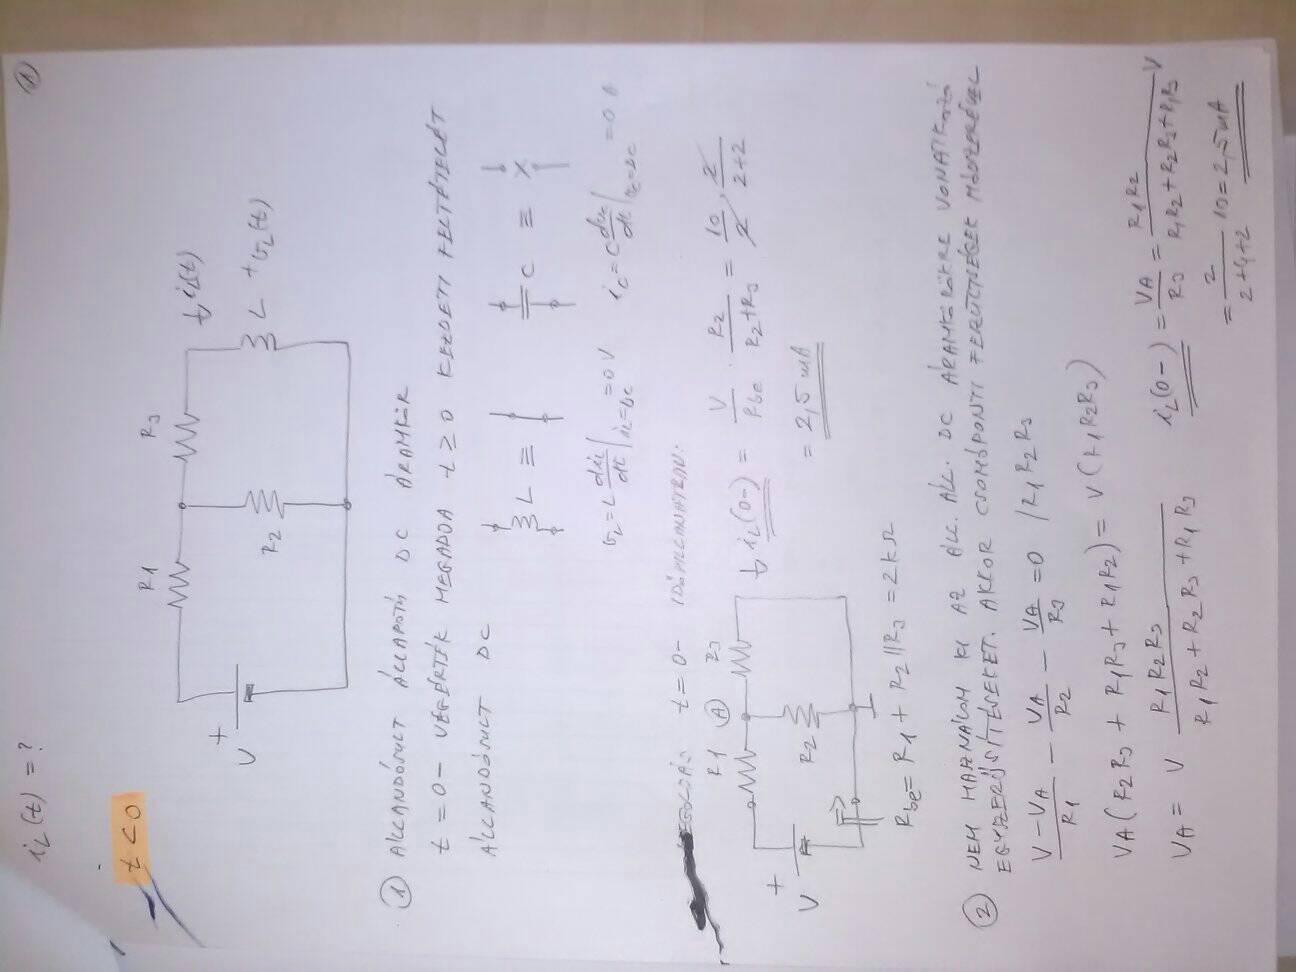 1
iL(t) = ?
t<0
R1
R3
iL(t)
V
+
R2
L
+ vL(t)
① ÁLLANDÓSULT ÁLLAPOTÚ DC ÁRAMKÖR
t = 0- VÉGÉRTÉK MEGADJA t ≥ 0 KEZDETI FELTÉTELÉT
ÁLLANDÓSULT DC
L ≡
C ≡
vL = L diL/dt | iL=DC = 0V
iC = C dvC/dt | vC=DC = 0 A
t=0- IDŐPILLANATBAN:
R1 Ⓐ R3
iL(0-) = V/Rbe · R2/(R2+R3) = 10/2 · 2/(2+2)
= 2,5 mA
V
+
R2
Rbe = R1 + R2||R3 = 2kΩ
② NEM HASZNÁLOM KI AZ ÁLL. ÁLL. DC ÁRAMKÖRÖKRE VONATKOZÓ
EGYSZERŰSÍTÉSEKET. AKKOR CSOMÓPONTI FESZÜLTSÉGEK MÓDSZERÉVEL
(V-VA)/R1 - VA/R2 - VA/R3 = 0 /R1R2R3
VA(R2R3 + R1R3 + R1R2) = V(R1R2R3)
VA = V R1R2R3/(R1R2+R2R3+R1R3)
iL(0-) = VA/R3 = R1R2/(R1R2+R2R3+R1R3) V
= 2/(2+4+2) 10 = 2,5 mA